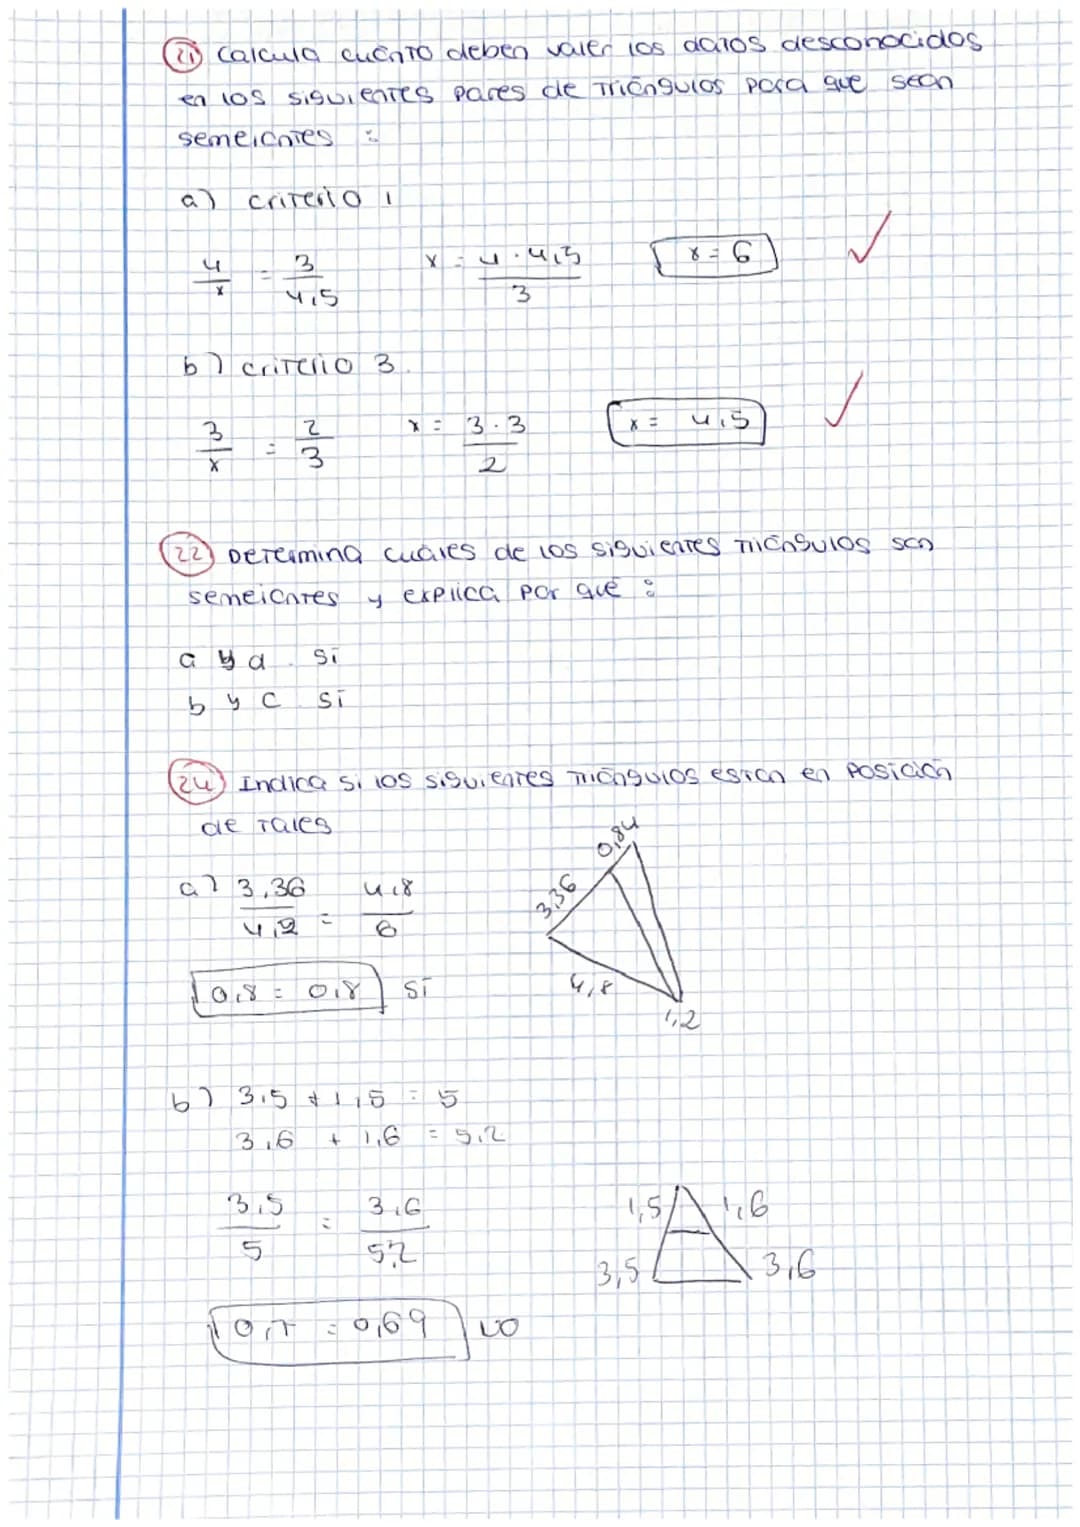 21 Calcula cuánto deben valer los datos desconocidos
en los siguientes pares de triángulos para que sean
semejantes :
a) criterio 1
4/x = 3/4,5 x = 4·4,5/3 x = 6
b) criterio 3.
3/x = 2/3 x = 3·3/2 x = 4,5
22 Determina cuáles de los siguientes triángulos son
semejantes y explica por qué :
a y d . sí
b y c . sí
24 Indica si los siguientes triángulos están en posición
de Tales
0,84
a) 3,36/4,2 = 4,8/6 3,36
0,8 = 0,8 sí 4,8
1,2
b) 3,5 + 1,5 = 5
3,6 + 1,6 = 5,2
3,5/5 = 3,6/5,2 1,5 1,6
3,5 3,6
0,7 = 0,69 NO